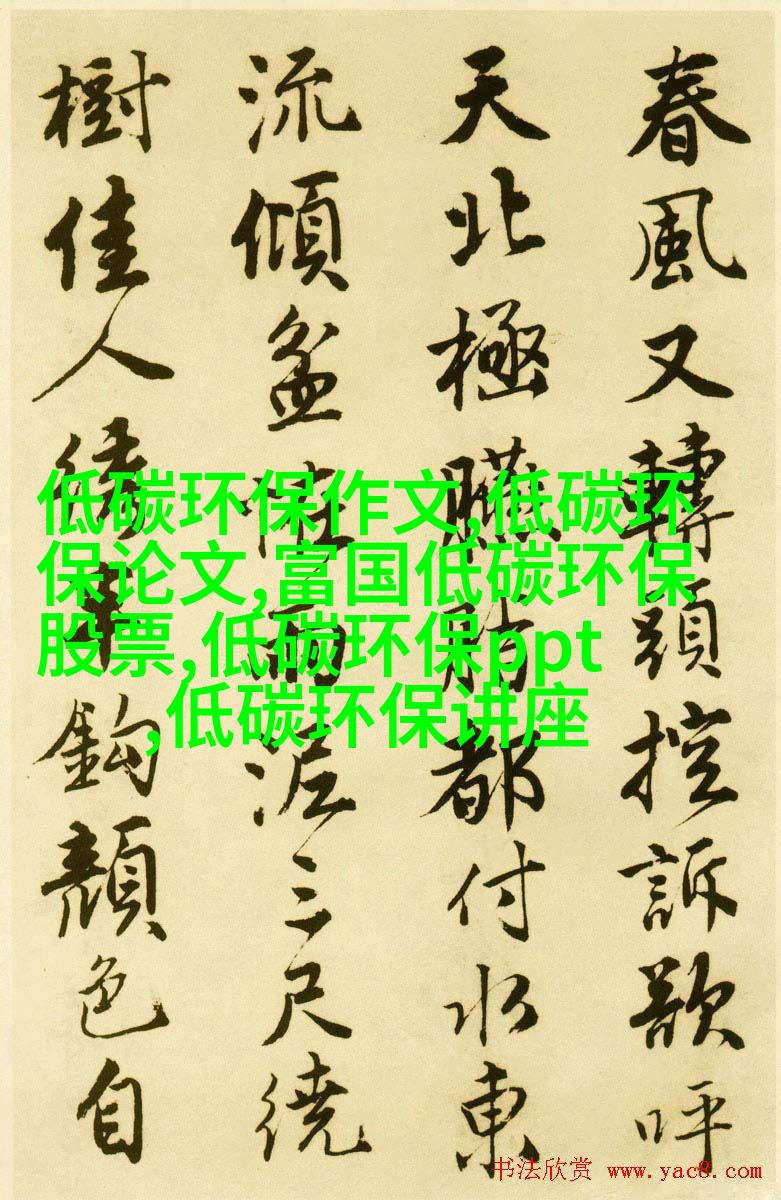 春風又轉頭控訴欲呼
天北極臙脂都付水東
流傾盆怪雨泥三尺繞
樹佳人繡半鉤顏色自
低碳环保作文,低碳环
保论文,富国低碳环保
股票,低碳环保ppt
,低碳环保讲座
书法欣赏 www.yac8.com